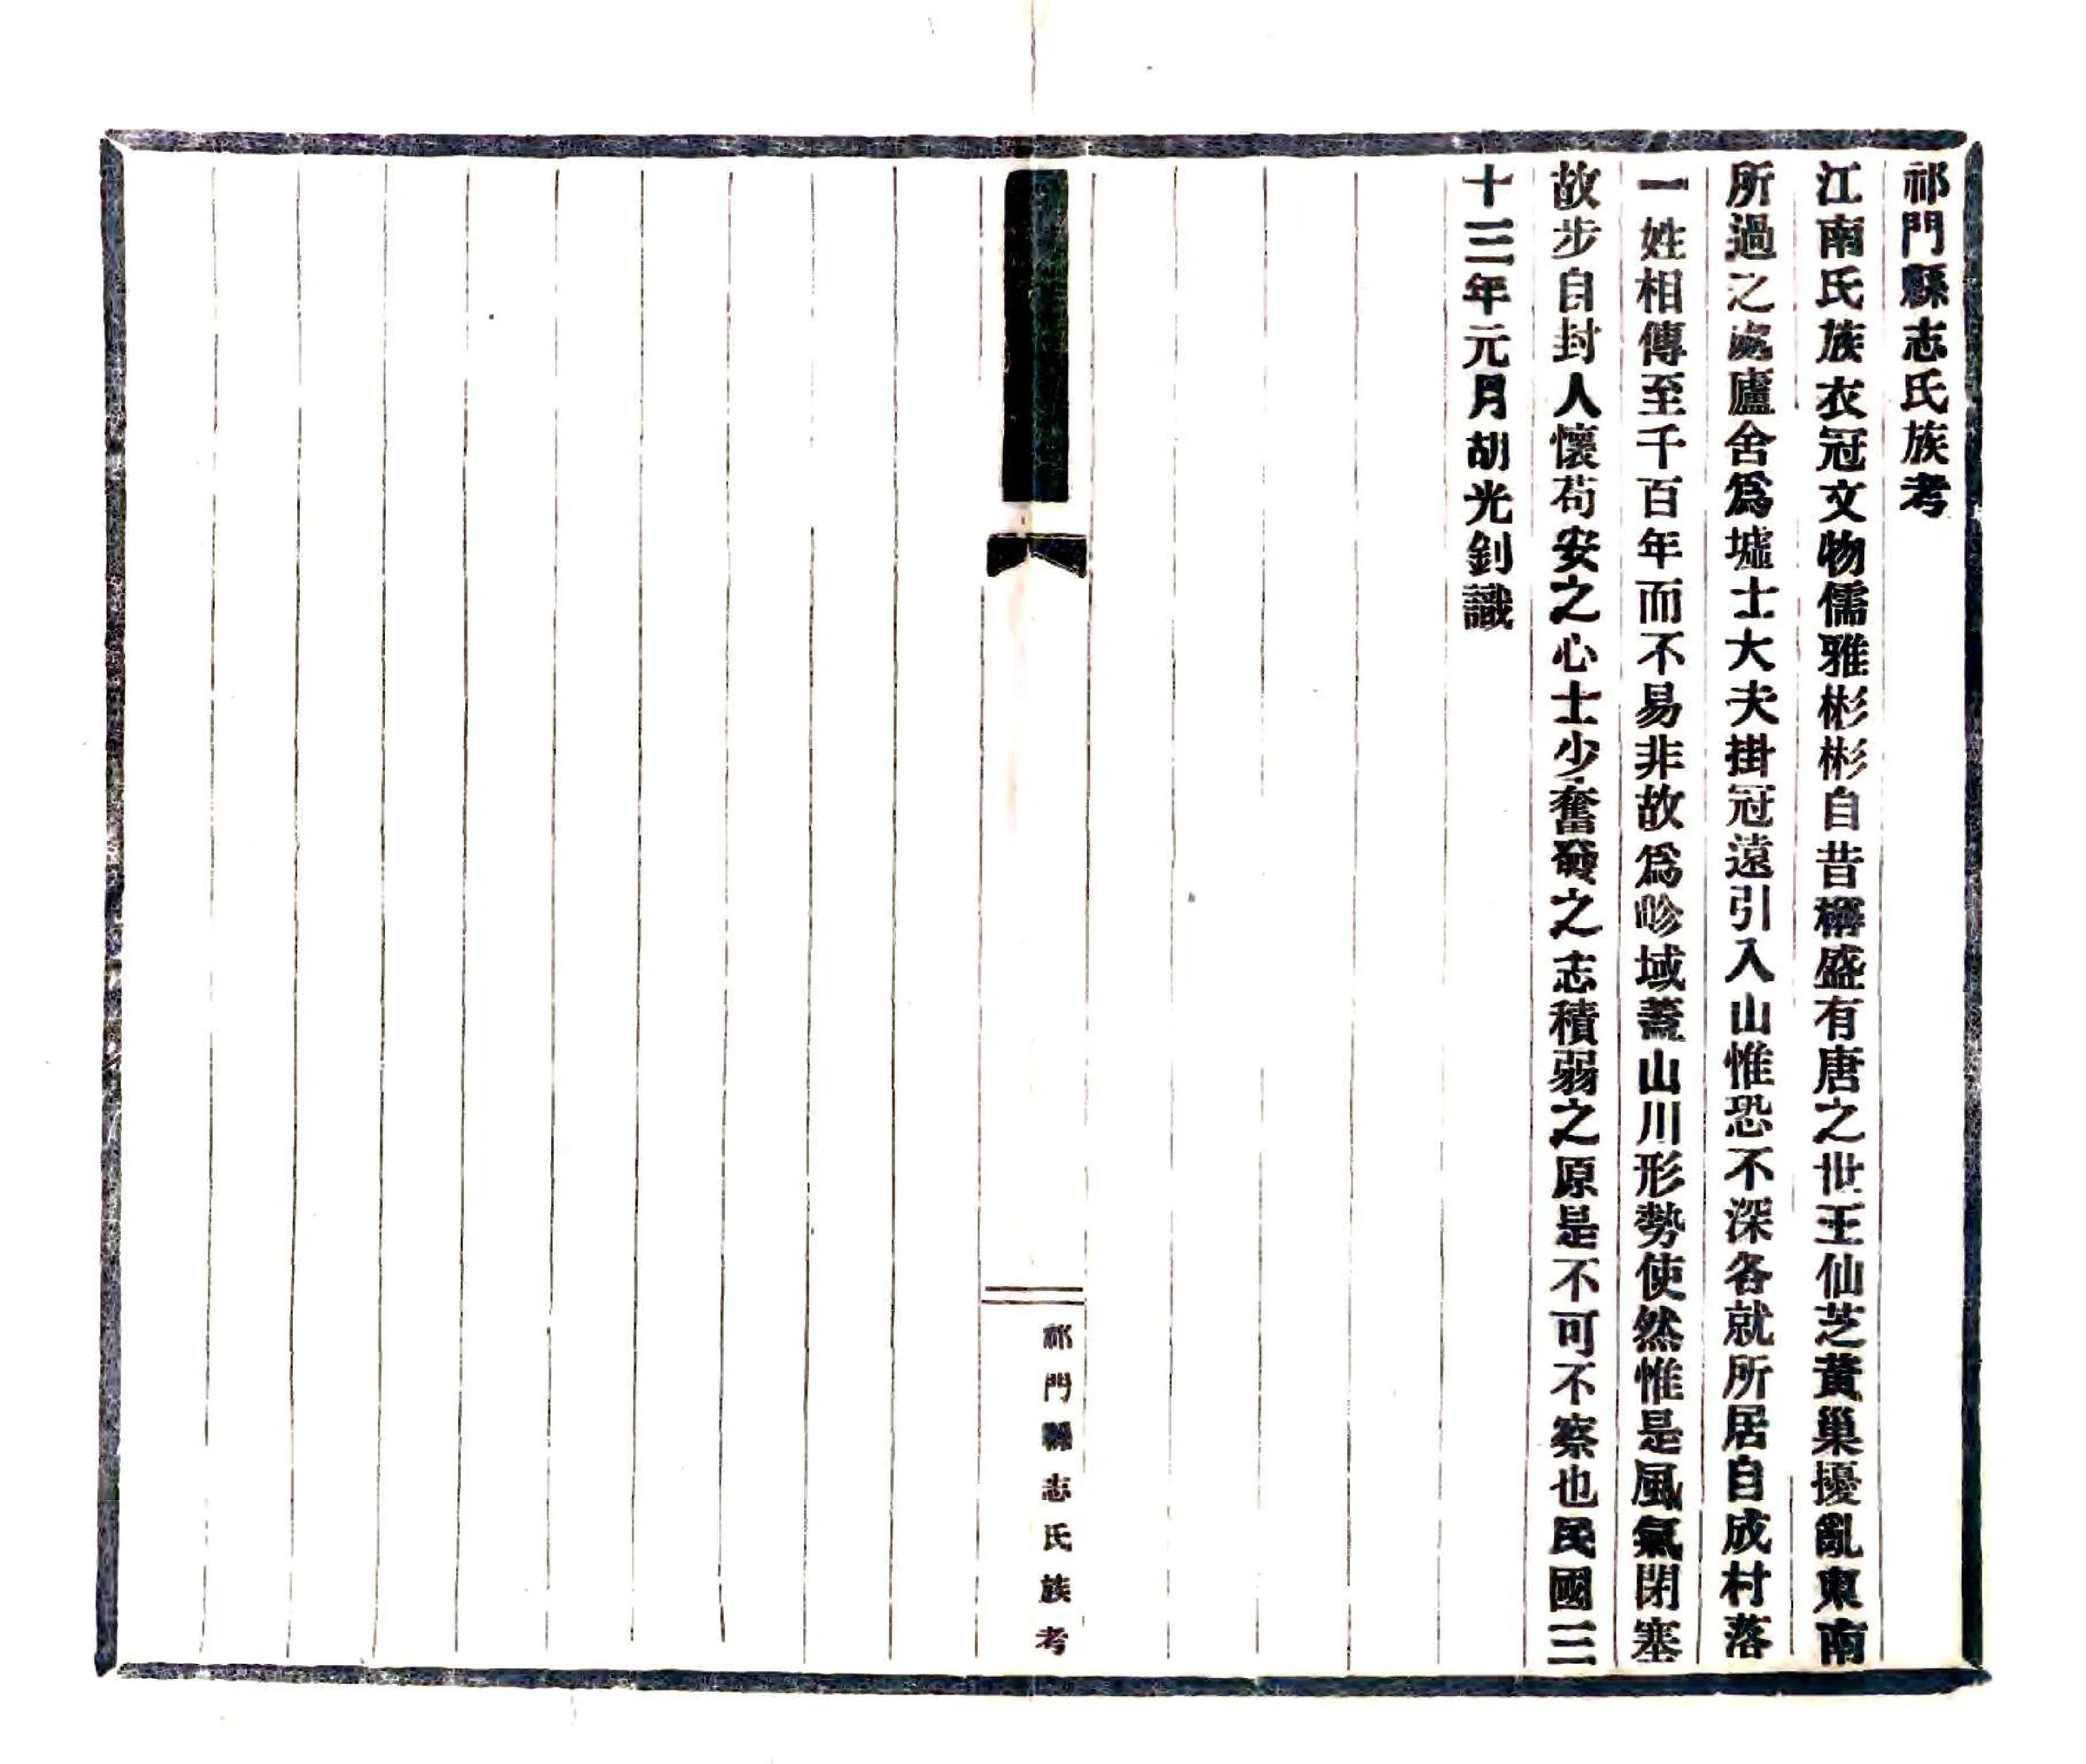 祁門縣志氏族考
江南氏族衣冠文物儒雅彬彬自昔稱盛有唐之世王仙芝黃巢擾亂東南
所過之處廬舍爲墟士大夫掛冠遠引入山惟恐不深各就所居自成村落
一姓相傳至千百年而不易非故爲畛域蓋山川形勢使然惟是風氣閉塞
故步自封人懷苟安之心士少奮發之志積弱之原是不可不察也民國三
十三年元月胡光釗識
祁門縣志氏族考